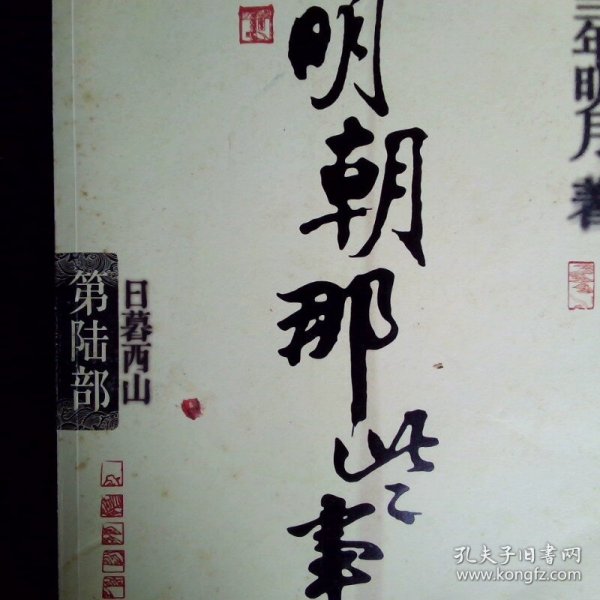 年明月 著
明朝那些事
第陆部
日暮西山
孔夫子旧书网
www.kongfz.com